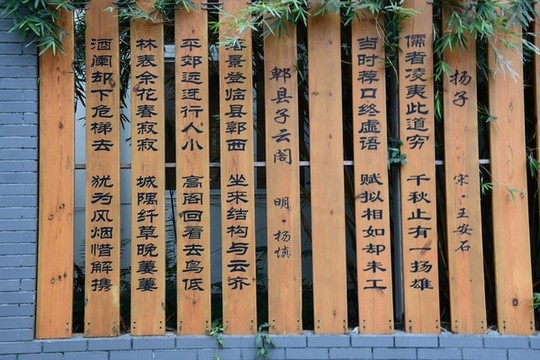 扬子 宋·王安石
儒者凌夷此道穷 千秋止有一扬雄
当时荐口终虚语 赋拟相如却未工
郫县子云阁 明·杨慎
落景登临县郭西 坐来结构与云齐
平郊远迩行人小 高阁回看去鸟低
林表余花春寂寂 城隅纤草晚萋萋
酒阑却下危梯去 犹为风烟惜解携